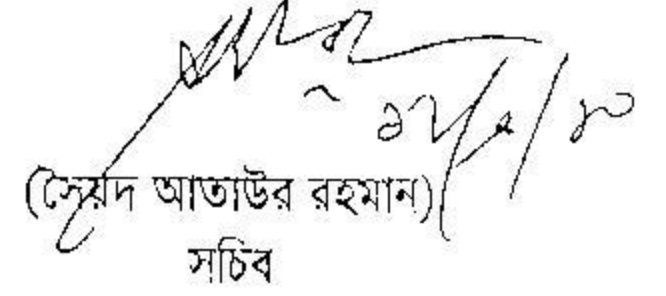 (সৈয়দ আতাউর রহমান)
সচিব